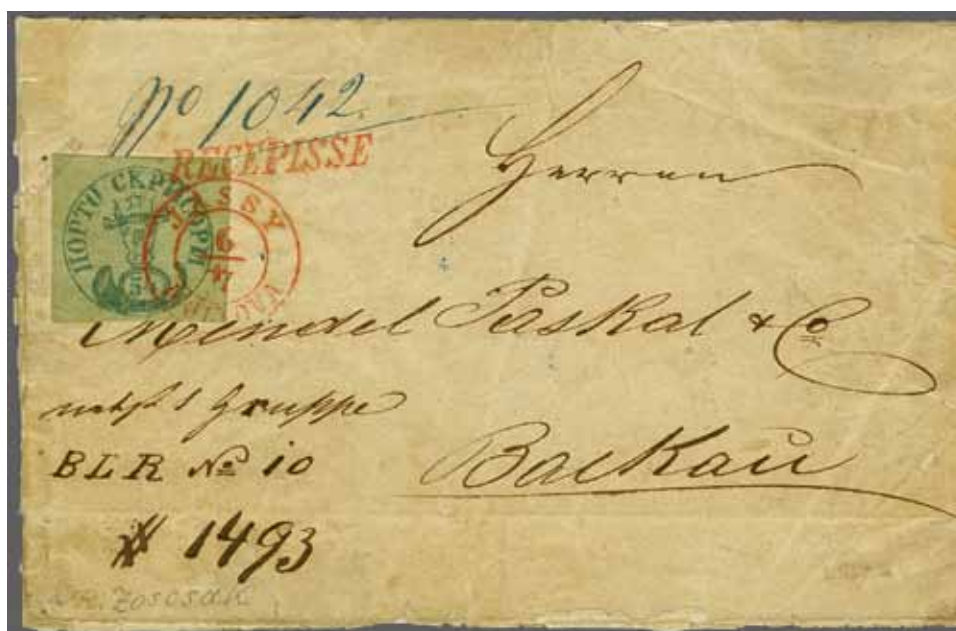 No 1042.
RECEPISSE
ПОРТО СКРИСОРИ
JASSY
6
/7
MOLDOVA
Herren
Mendel Paskal & Co
1 Gruppe
BLR No 10
# 1493
Backau